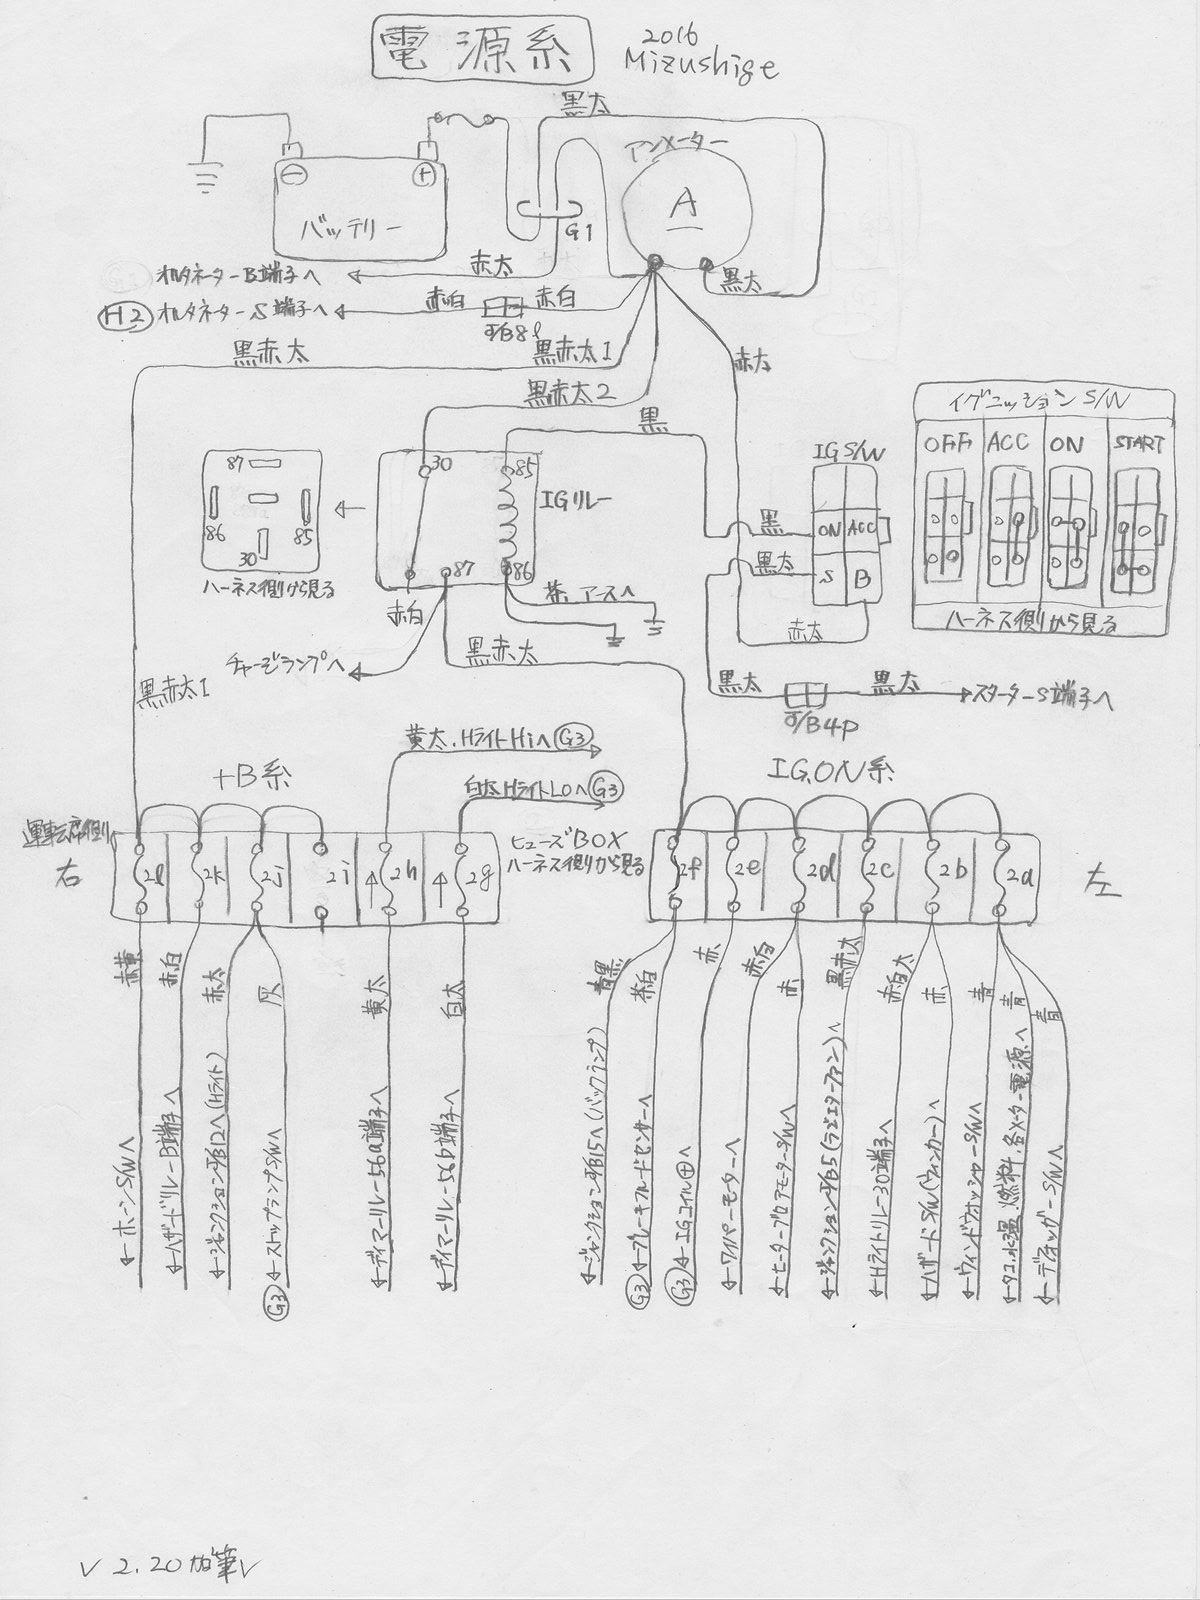 電源系
2016
Mizushige
黒太
アンメーター
A
バッテリー
G1
オルタネーターB端子へ
赤太
黒太
H2 オルタネーターS端子へ
赤白
赤白
J/B8P
黒赤太
黒赤太1
赤太
黒赤太2
黒
イグニッションS/W
OFF ACC ON START
ハーネス側から見る
IG S/W
ON ACC
S B
黒
黒太
赤太
87
86
85
30
ハーネス側から見る
30
85
IGリレー
87
86
茶 アースへ
赤白
チャージランプへ
黒赤太
黒赤太1
黒太
黒太
スターターS端子へ
J/B4P
黄太.HライトHiへ G3
白太HライトLOへ G3
+B系
IG.ON系
運転席側
右
ヒューズBOX
ハーネス側から見る
左
2l
2k
2j
2i
2h
2g
2f
2e
2d
2c
2b
2a
赤黄
赤白
赤太
灰
黄太
白太
青黒
茶白
赤
赤白
赤
黒赤太
赤白太
赤
青
青
青
←ホーンS/Wへ
←ハザードリレーB端子へ
←ジャンクションJ/B12へ(Hライト)
G3 ←ストップランプS/Wへ
←ディマーリレー56a端子へ
←ディマーリレー56b端子へ
←ジャンクションJ/B15へ(バックランプ)
G3 ←ブレーキフルードセンサーへ
G3 ←IGコイル⊕へ
←ワイパーモーターへ
←ヒーターブロアモーターS/Wへ
←ジャンクションJ/B5(ラジエターファン)へ
←Hライトリレー30端子へ
←ハザードS/W(ウィンカー)へ
←ウィンドウォッシャーS/Wへ
←タコ.水温.燃料.各メーター電源へ
←デフォッガーS/Wへ
V 2.20加筆V